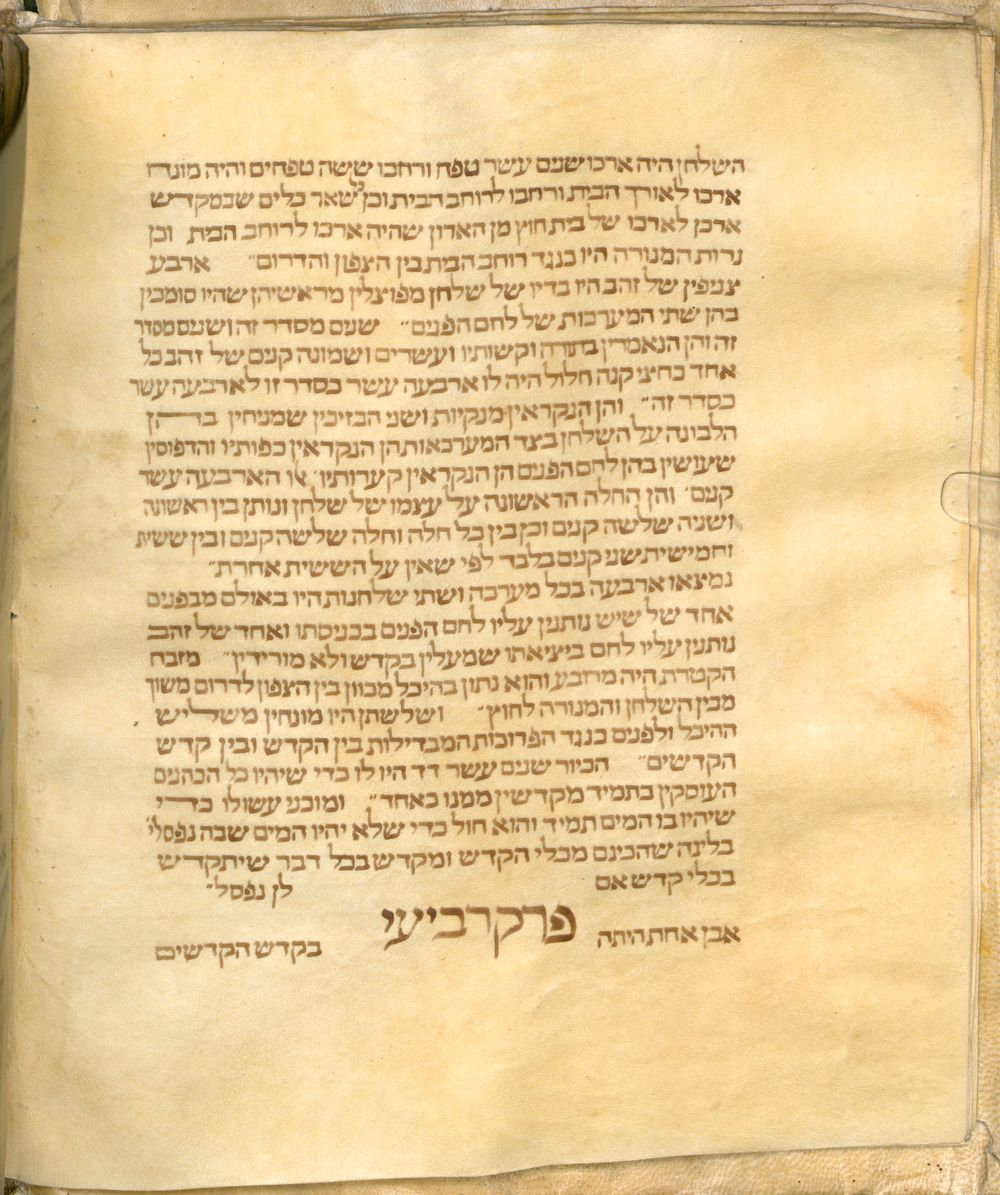 השלחן היה ארכו שנים עשר טפח ורחבו ששה טפחים והיה מונח
ארכו לאורך הבית ורחבו לרוחב הבית וכן כל שאר כלים שבמקדש
ארכן לארכו של בית חוץ מן הארון שהיה ארכו לרוחב הבית וכן
נרות המנורה היו כנגד רוחב הבית בין הצפון והדרום״ ארבע
צניפין של זהב היו בדיו של שלחן מפוצלין מראשיהן שהיו סומכין
בהן שתי המערכות של לחם הפנים״ שנים מסדר זה ושנים מסדר
זה והן הנאמרין בתורה וקשותיו ועשרים ושמונה קנים של זהב כל
אחד כחצי קנה חלול היה לו ארבעה עשר בסדר זו לארבעה עשר
בסדר זה״ והן הנקראין מנקיות ושני הבזיכין שמניחין בהן
הלבונה על השלחן בצד המערכאות הן הנקראין כפותיו והדפוסין
שעושין בהן לחם הפנים הן הנקראין קערותיו׳ אלו הארבעה עשר
קנים׳ והן החלה הראשונה על עצמו של שלחן ונותן בין ראשונה
ושניה שלשה קנים וכן בין כל חלה וחלה שלשה קנים ובין ששית
וחמישית שני קנים בלבד לפי שאין על הששית אחרת״
נמצאו ארבעה בכל מערכה ושתי שלחנות היו באולם מבפנים
אחד של שיש נותנין עליו לחם הפנים בכניסתו ואחד של זהב
נותנין עליו לחם ביציאתו שמעלין בקדש ולא מורידין״ מזבח
הקטרת היה מרובע והוא נתון בהיכל מכוון בין הצפון לדרום משוך
מבין השלחן והמנורה לחוץ״ ושלשתן היו מונחין משליש
ההיכל ולפנים כנגד הפרוכות המבדילות בין הקדש ובין קדש
הקדשים״ הכיור שנים עשר דד היו לו כדי שיהיו כל הכהנים
העוסקין בתמיד מקדשין ממנו כאחד״ ומוכני עשו לו כדי
שיהיו בו המים תמיד והוא חול כדי שלא יהיו המים שבה נפסלי׳
בלינה שהכינם מכלי הקדש ומקדש בכל דבר שיתקדש
בכלי קדש אם לן נפסל״
פרק רביעי
אבן אחת היתה בקדש הקדשים